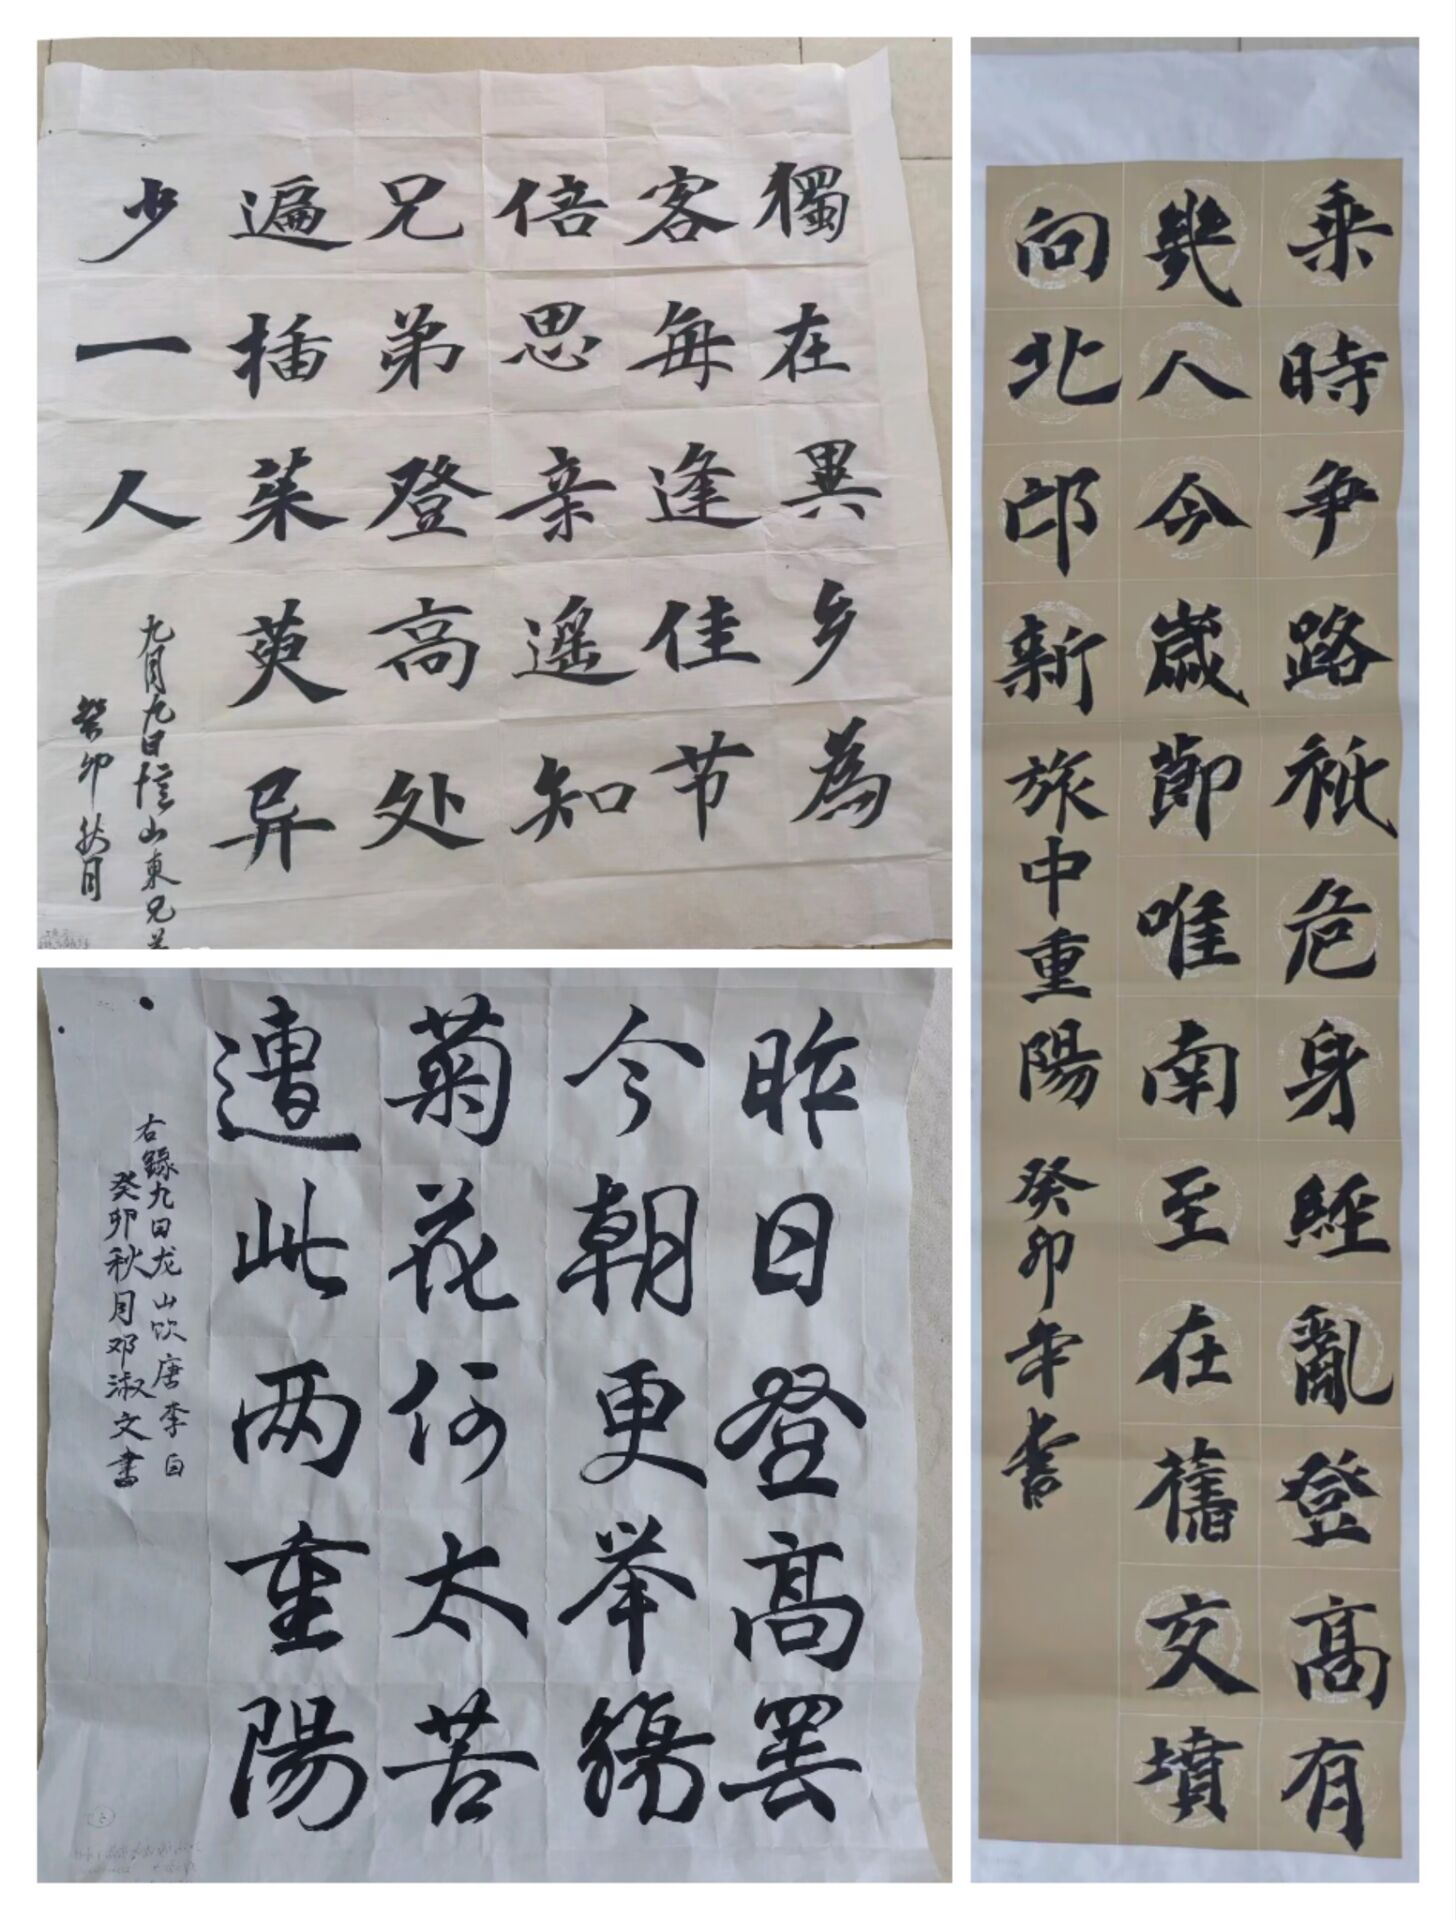 獨在異乡為
客每逢佳节
倍思亲遥知
兄弟登高处
遍插茱萸异
少一人
九月九日憶山東兄弟
癸卯秋月
昨日登高罢
今朝更举觞
菊花何太苦
遭此两重陽
右錄九日龙山饮唐李白
癸卯秋月邓淑文書
乘時争路祗危身經亂登高有
幾人今歲節唯南至在舊交墳
向北邙新旅中重陽 癸卯年书